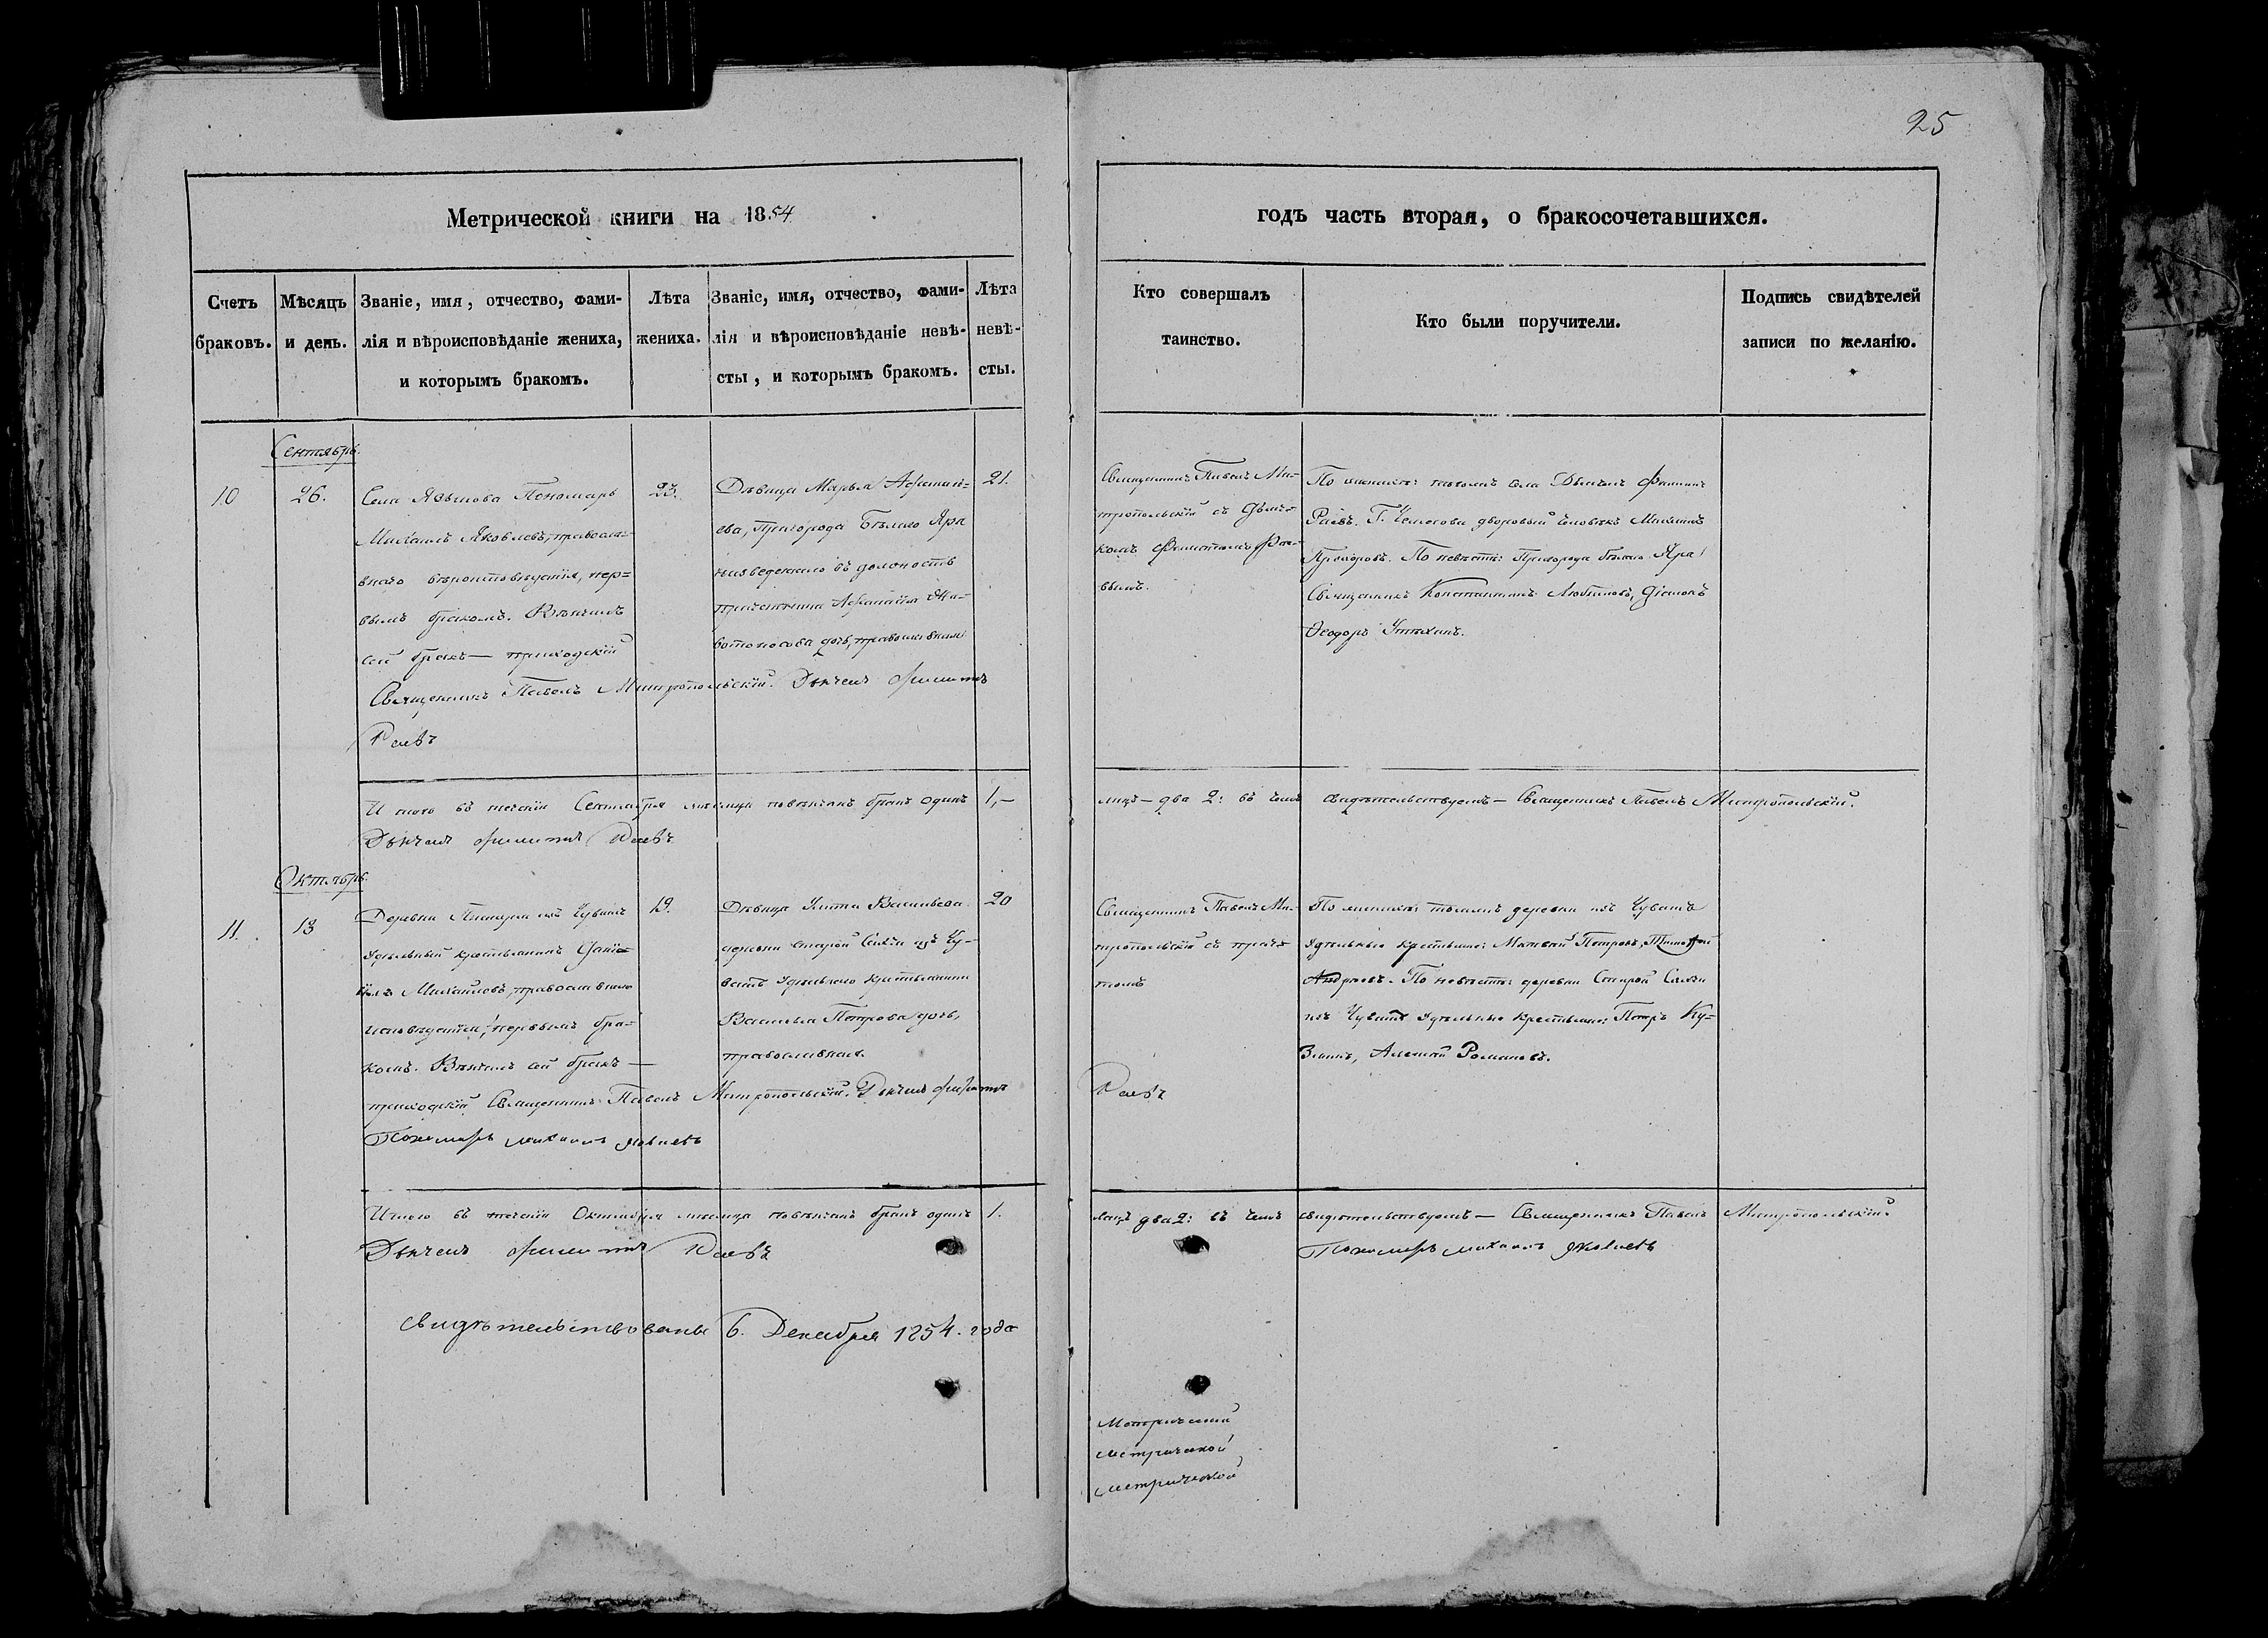 25
Метрической книги на 1854
годъ часть вторая, о бракосочетавшихся.
Счетъ браковъ.
Мѣсяцъ и день.
Званіе, имя, отчество, фами-
лія и вѣроисповѣданіе жениха,
и которымъ бракомъ.
Лѣта
жениха.
Званіе, имя, отчество, фами-
лія и вѣроисповѣданіе невѣ-
сты, и которымъ бракомъ.
Лѣта
невѣ-
сты.
Кто совершалъ
таинство.
Кто были поручители.
Подпись свидѣтелей
записи по желанію.
Сентябрь.
10
26.
Села Языкова Пономарь
Михаилъ Яковлевъ, правосла-
внаго вѣроисповѣданія, пер=
вымъ бракомъ. Вѣнчалъ
сей бракъ — приходскій
Священникъ Павелъ Митропольскій. Дьячекъ Филиппъ
Раевъ
23.
Дѣвица Марья Афанась-
ева, Пригорода Бѣлаго Яра
въ должность
Афанасія Жи-
вотоносова дочь, православная
21.
Священникъ Павелъ Ми-
тропольскій съ Дьяч-
комъ Филиппомъ Рае-
вымъ.
По женихѣ: тогожъ села Дьячекъ Филиппъ
Раевъ. Г. дворовый человѣкъ Михаилъ
Прохоровъ. По невѣстѣ: Пригорода Бѣлаго Яра
Священникъ Константинъ Любимовъ, Діаконъ
Ѳеодоръ Утѣхинъ.
Итого въ теченіи Сентября мѣсяца повѣнчанъ бракъ одинъ 1,—
лицъ — два 2: въ чемъ свидѣтельствуемъ — Священникъ Павелъ Митропольскій.
Дьячекъ Филиппъ Раевъ
Октябрь.
11.
13
Деревни изъ Чувашъ
Удѣльный крестьянинъ Дані-
илъ Михайловъ, православнаго
исповѣданія, первымъ бра-
комъ. Вѣнчалъ сей бракъ —
приходскій Священникъ Павелъ Митропольскій. Дьячекъ Филиппъ
Раевъ
Пономарь Михаилъ Яковлевъ
19.
Дѣвица Улита Васильева
деревни Старой изъ Чу-
вашъ Удѣльнаго крестьянина
Василья Петрова дочь,
православная.
20
Священникъ Павелъ Ми-
тропольскій съ прич-
томъ
По женихѣ: тоежъ деревни изъ Чувашъ
Удѣльные крестьяне: Матвей Петровъ, Тимофей
Андреевъ. По невѣстѣ: деревни Старой
изъ Чувашъ Удѣльные крестьяне: Петръ Ку-
зминъ, Алексей Романовъ.
Итого въ теченіи Октября мѣсяца повѣнчанъ бракъ одинъ 1.
лицъ два 2: въ чемъ свидѣтельствуемъ — Священникъ Павелъ Митропольскій.
Дьячекъ Филиппъ Раевъ
Пономарь Михаилъ Яковлевъ
Свидѣтельствованы 6. Декабря 1854. года
Метрической
метрической
метрической